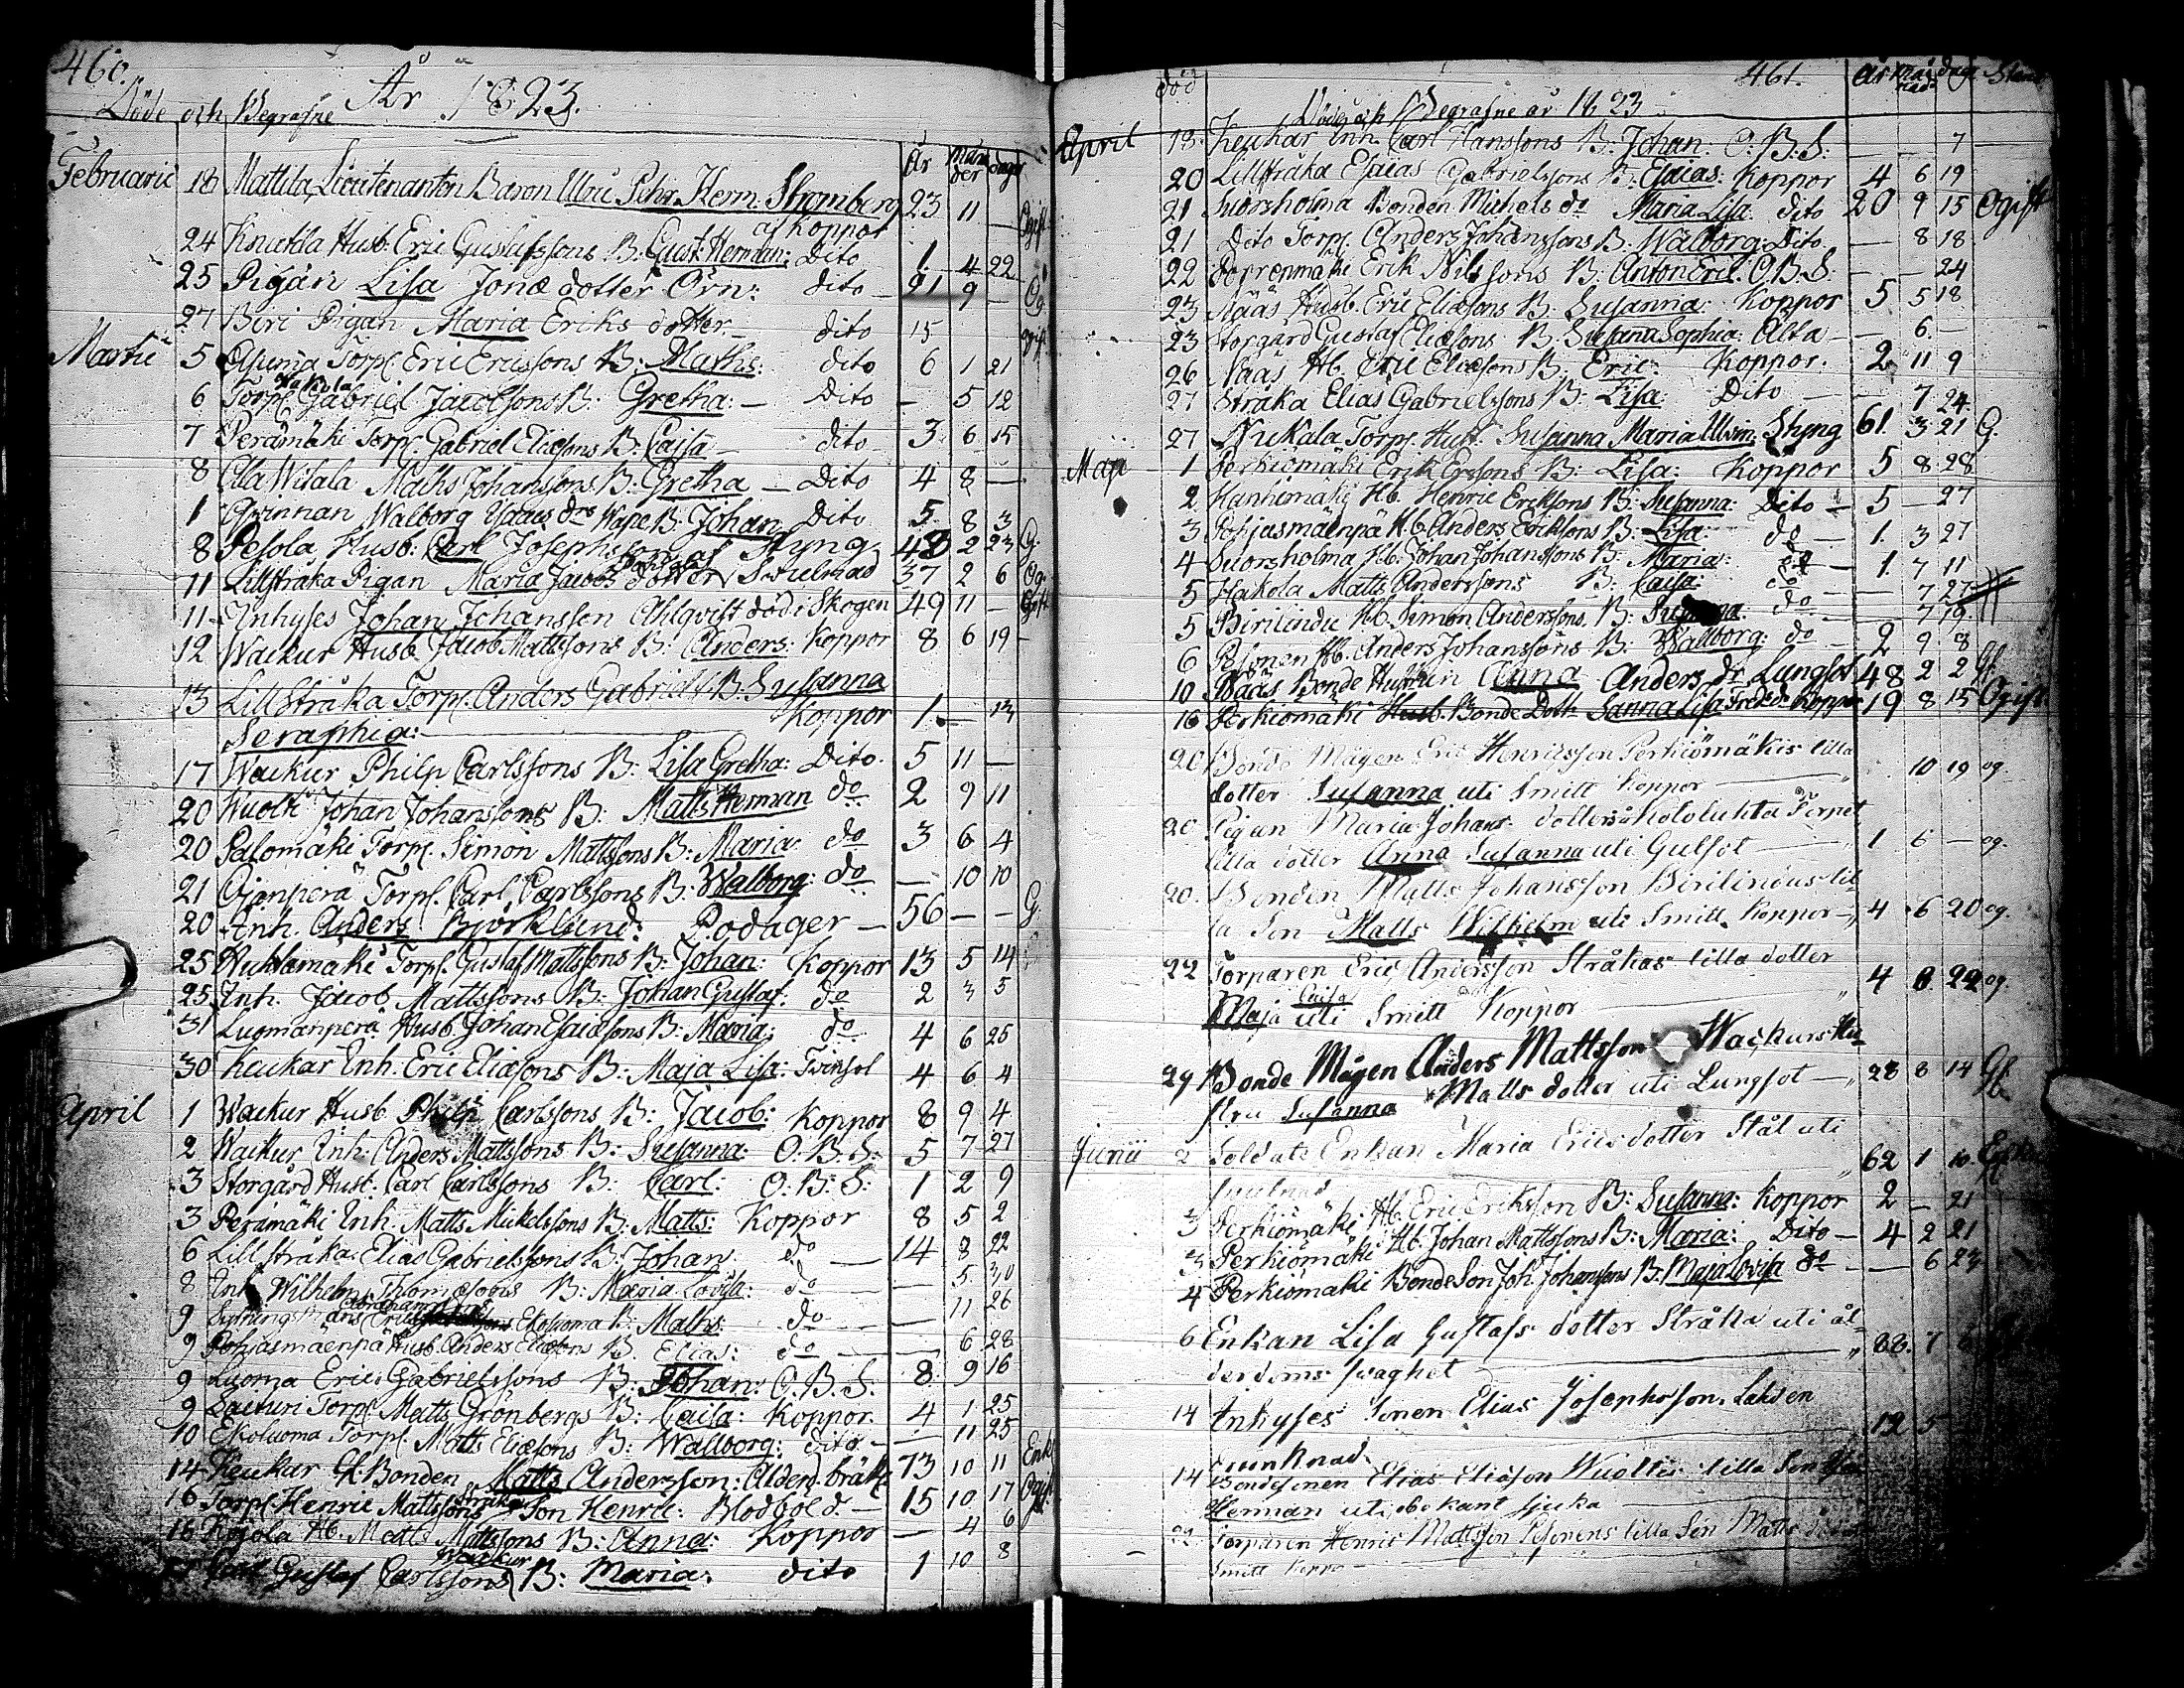 460.
År 1823.
Döde och Begrafne
År Måna der dagar
Februarii 18 Mattila, Lieutenanten Baron Ulric Pehr Herm. Stromberg 23 11 — Ogift
af Koppor
24 Knutila Husb. Eric Gustafssons B: Gust: Herman: Dito 1 4 22
25 Pigan Lisa Jonæ dotter Örn: dito 21 9 — Og
27 Biri Pigan Maria Eriks dotter — dito 15 Ogift
Martii 5 Torp. Eric Ericssons B: Maths: dito 6 1 21
Hakola
6 Torp. Gabriel Jacobssons B: Gretha: — Dito — 5 12
7 Perämäki Torp. Gabriel Eliæsons B: Caisa — dito 3 6 15
8 Ala Wisala Maths Johanssons B: Gretha — Dito 4 8 —
1 Qwinnan Walborg B: Johan Dito 5 8 3
8 Pesola Husb: Carl Josephsson af Styng 48 2 23 G.
11 Lillstråka Pigan Maria Jacobs dotter 37 2 6 Og.
11 Inhyses Johan Johansson Ahlqvist död i Skogen 49 11 — Gift
12 Wackur Husb. Jacob Mattssons B: Anders: Koppor 8 6 19 -
13 Lillstråka Torp. Anders Gabriels B: Susanna
Seraphia: Koppor 1. — 13
17 Wackur Philp Carlssons B: Lisa Gretha: Dito 5 11 —
20 Wuolti Johan Johanssons B: Matts Herman do 2 9 11
20 Palomäki Torp. Simon Mattssons B: Maria: do 3 6 4
21 Ojanperä Torp. Carl Carlssons B: Walborg: do — 10 10
20 Inh. Anders Björklund: Podager — 56 — — G.
25 Torp. Gustaf Mattssons B: Johan: Koppor 13 5 14
25 Inh. Jacob Mattssons B: Johan Gustaf: do 2 3 5
31 Luomanperä Husb. Johan Esaiæsons B: Maria: do 4 6 25
30 Keukar Inh. Eric Eliæsons B: Maja Lisa: Tvinsot 4 6 4
April 1 Wackur Husb. Philp Carlssons B: Jacob: Koppor 8 9 4
2 Wackur Inh: Anders Mattssons B: Susanna: O. B. S: 5 7 27
3 Storgård Husb: Carl Carlssons B: Carl: O: B: S: 1 2 9
3 Perämäki Inh. Matts Mickelssons B: Matts: Koppor 8 5 2
6 Lillstråka Elias Gabrielssons B: Johan do 14 8 22
8 Inh. Wilhelm Thomæsons B: Maria Lovisa: do — 5 30
9 Ekoluoma B: Maths: do — 11 26
9 Pohjasmäenpä Husb. Anders Eliæsons B. Elias: do — 6 28
9 Luoma Eric Gabrielssons B: Johan: O. B. S. 8. 9 16
9 Torp. Matts Grönbergs B: Caisa: Koppor. 4 1 25
10 Ekoluoma Torp. Matts Eliæsons B: Walborg: dito — 11 25
14 Keukar Gl. Bonden Matts Andersson: Ålderd. bräkl. 73 10 11 Enkl
16 Torp. Henric Mattssons Son Henric: Blodsold — 15 10 17 Ogift
16 Kojola Hb. Matts Mattssons B: Anna: Koppor — 4 6
Wackur
Gustaf Carlssons B: Maria: dito 1 10 8
461.
död Döde och Begrafne år 1823 år månad dag Stånd
April 18. Keukar Inh. Carl Hanssons B: Johan: O: B: S: — — 7
20 Lillstråka Esaias Gabrielssons B: Esaias: Koppor 4 6 19
21 Suorsholma Bonden Michels do Maria Lisa dito 20 9 15 Ogift
21 Dito Torp. Anders Johanssons B: Walborg: Dito — 8 18
22 Erik Nilssons B: Anton Eric: O B. S: — — 24
23 Nääs Husb. Eric Eliæsons B: Susanna: Koppor 5 5 18
23 Storgård Gustaf Eliæsons B: Susana Sophia: Ålta — 6. —
26 Nääs Hb. Eric Eliæsons B: Eric: Koppor. 2 11 9
27 Stråka Elias Gabrielssons B: Lisa: Dito — 7 24
27 Nukala Torp. Hust. Susanna Maria Styng 61 3 21 G.
Maji 1 Perkiömäki Erik Erssons B: Lisa: Koppor 5 8 28
2 Hanhimäki Hb. Henric Erikssons B: Susanna: Dito — 5 — 27
3 Pohjasmäenpä Hb. Anders Erikssons B: Lisa: do — 1. 3 27
4 Suorsholma Hb. Johan Johanssons B: Maria: do — 1. 7 11
5 Hakola Matts Anderssons B: Caisa: do — — 7 27
5 Birilindu Hb. Simon Anderssons B: do — 7 19
6 Pesonen Hb. Anders Johanssons B: Walborg: do — 2 9 8
10 Nääs Bonde Hustrun Anna Anders dr Lungsot 48 2 2 Gf.
16 Perkiömäki Bonde Dottr Sanna Lisa Fredr. dr Koppor 19 8 15 Ogift
20 Bonde Mågen Eric Henricsson Perkiömäkis lilla
dotter Susanna uti Smitt Koppor — 10 19 og.
20 Pigan Maria Johans dotters Torpet
lilla dotter Anna Susanna uti Gulsot — 1 6 — og.
20. Bonden Matts Johansson Birilindus lil-
la Son Matts Wilhelm uti Smitt Koppor — 4 6 20 og.
22 Torparen Eric Andersson Stråkas lilla dotter
Caisa
Maja uti Smitt Koppor 4 8 22 og.
29 Bonde Mågen Anders Mattsson Wackurs Hu-
stru Susanna Matts dotter uti Lungsot — 28 8 14 Gf.
Junii 2 Soldats Enkan Maria Erics dotter Stål uti
62 1 10 Enka
3 Perkiömäki Hb. Eric Eriksson B: Susanna: Koppor 2 — 21
3 Perkiömäki Hb. Johan Mattssons B: Maria: Dito — 4 2 21
4 Perkiömäki Bonde Son Joh. Johanssons B: Maja Lovisa do — — 6 23
6 Enkan Lisa Gustafs dotter Stråka uti ål-
derdoms swaghet 88. 7 6
14 Inhyses Sonen Elias Josephsson
Drunknad 12 5
14 Bondesonen Elias Eliæson Wuoltis lilla Son
Herman uti obekant sjuka
22 Torparen Henric Mattsson Pesonens lilla Son Matts
Smitt Koppor